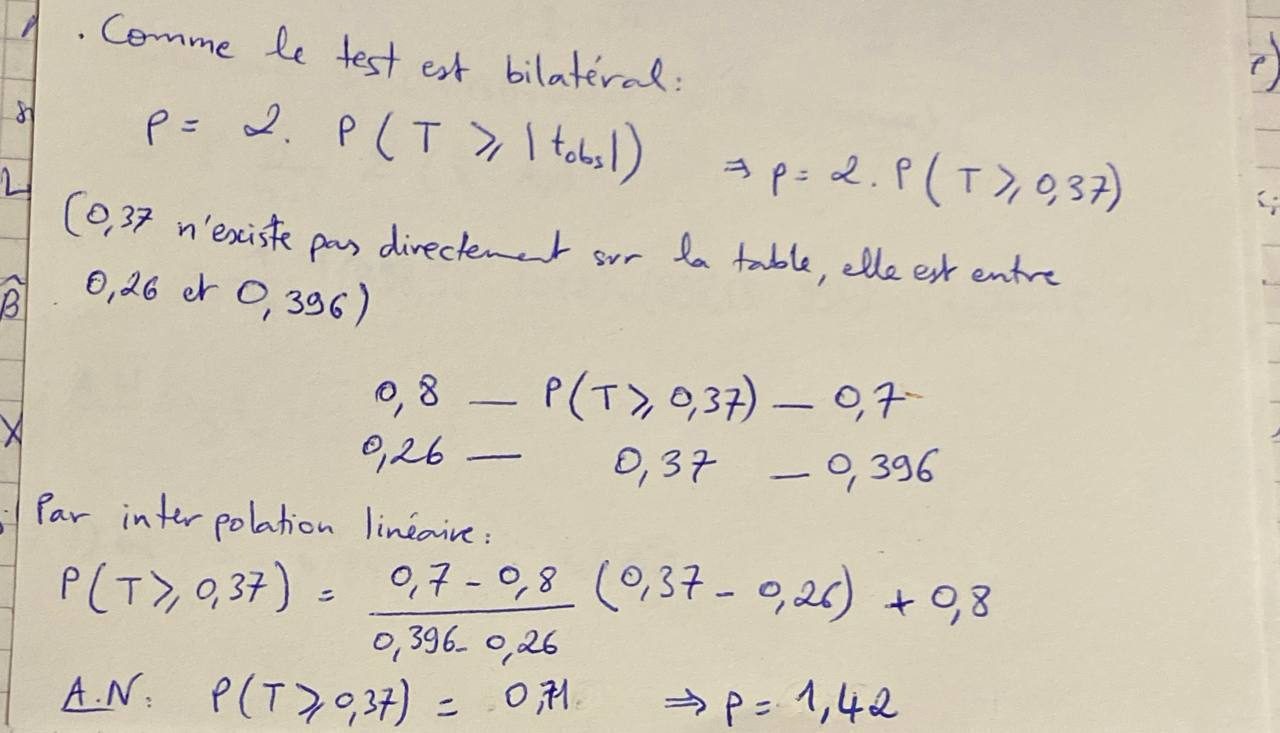 . Comme le test est bilatéral:
p = 2. P(T ⩾ |tobs|) ⇒ p = 2. P(T ⩾ 0,37)
(0,37 n'existe pas directement sur la table, elle est entre
0,26 et 0,396)
0,8 — P(T ⩾ 0,37) — 0,7
0,26 — 0,37 — 0,396
Par interpolation linéaire:
P(T ⩾ 0,37) = (0,7 - 0,8)/(0,396 - 0,26) (0,37 - 0,26) + 0,8
A.N: P(T ⩾ 0,37) = 0,71 ⇒ p = 1,42